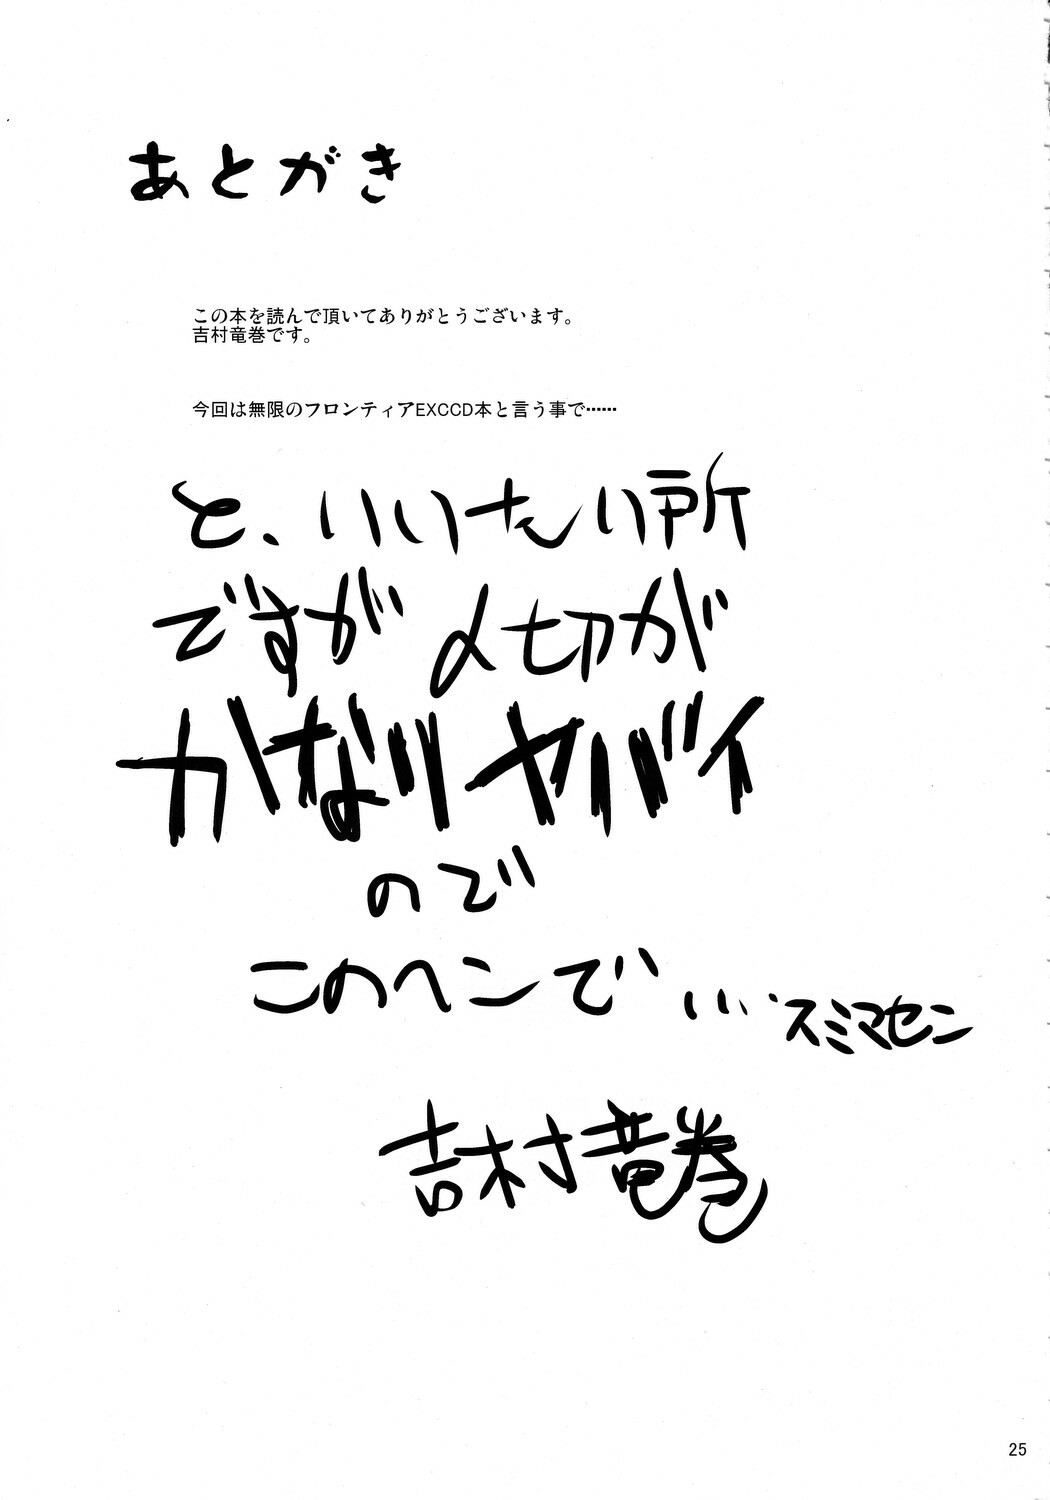 あとがき
この本を読んで頂いてありがとうございます。
吉村竜巻です。
今回は無限のフロンティアEXCCD本と言う事で……
と、いいたい所
ですが〆切が
かなりヤバイ
ので
このヘンで…
スミマセン
吉村竜巻
25